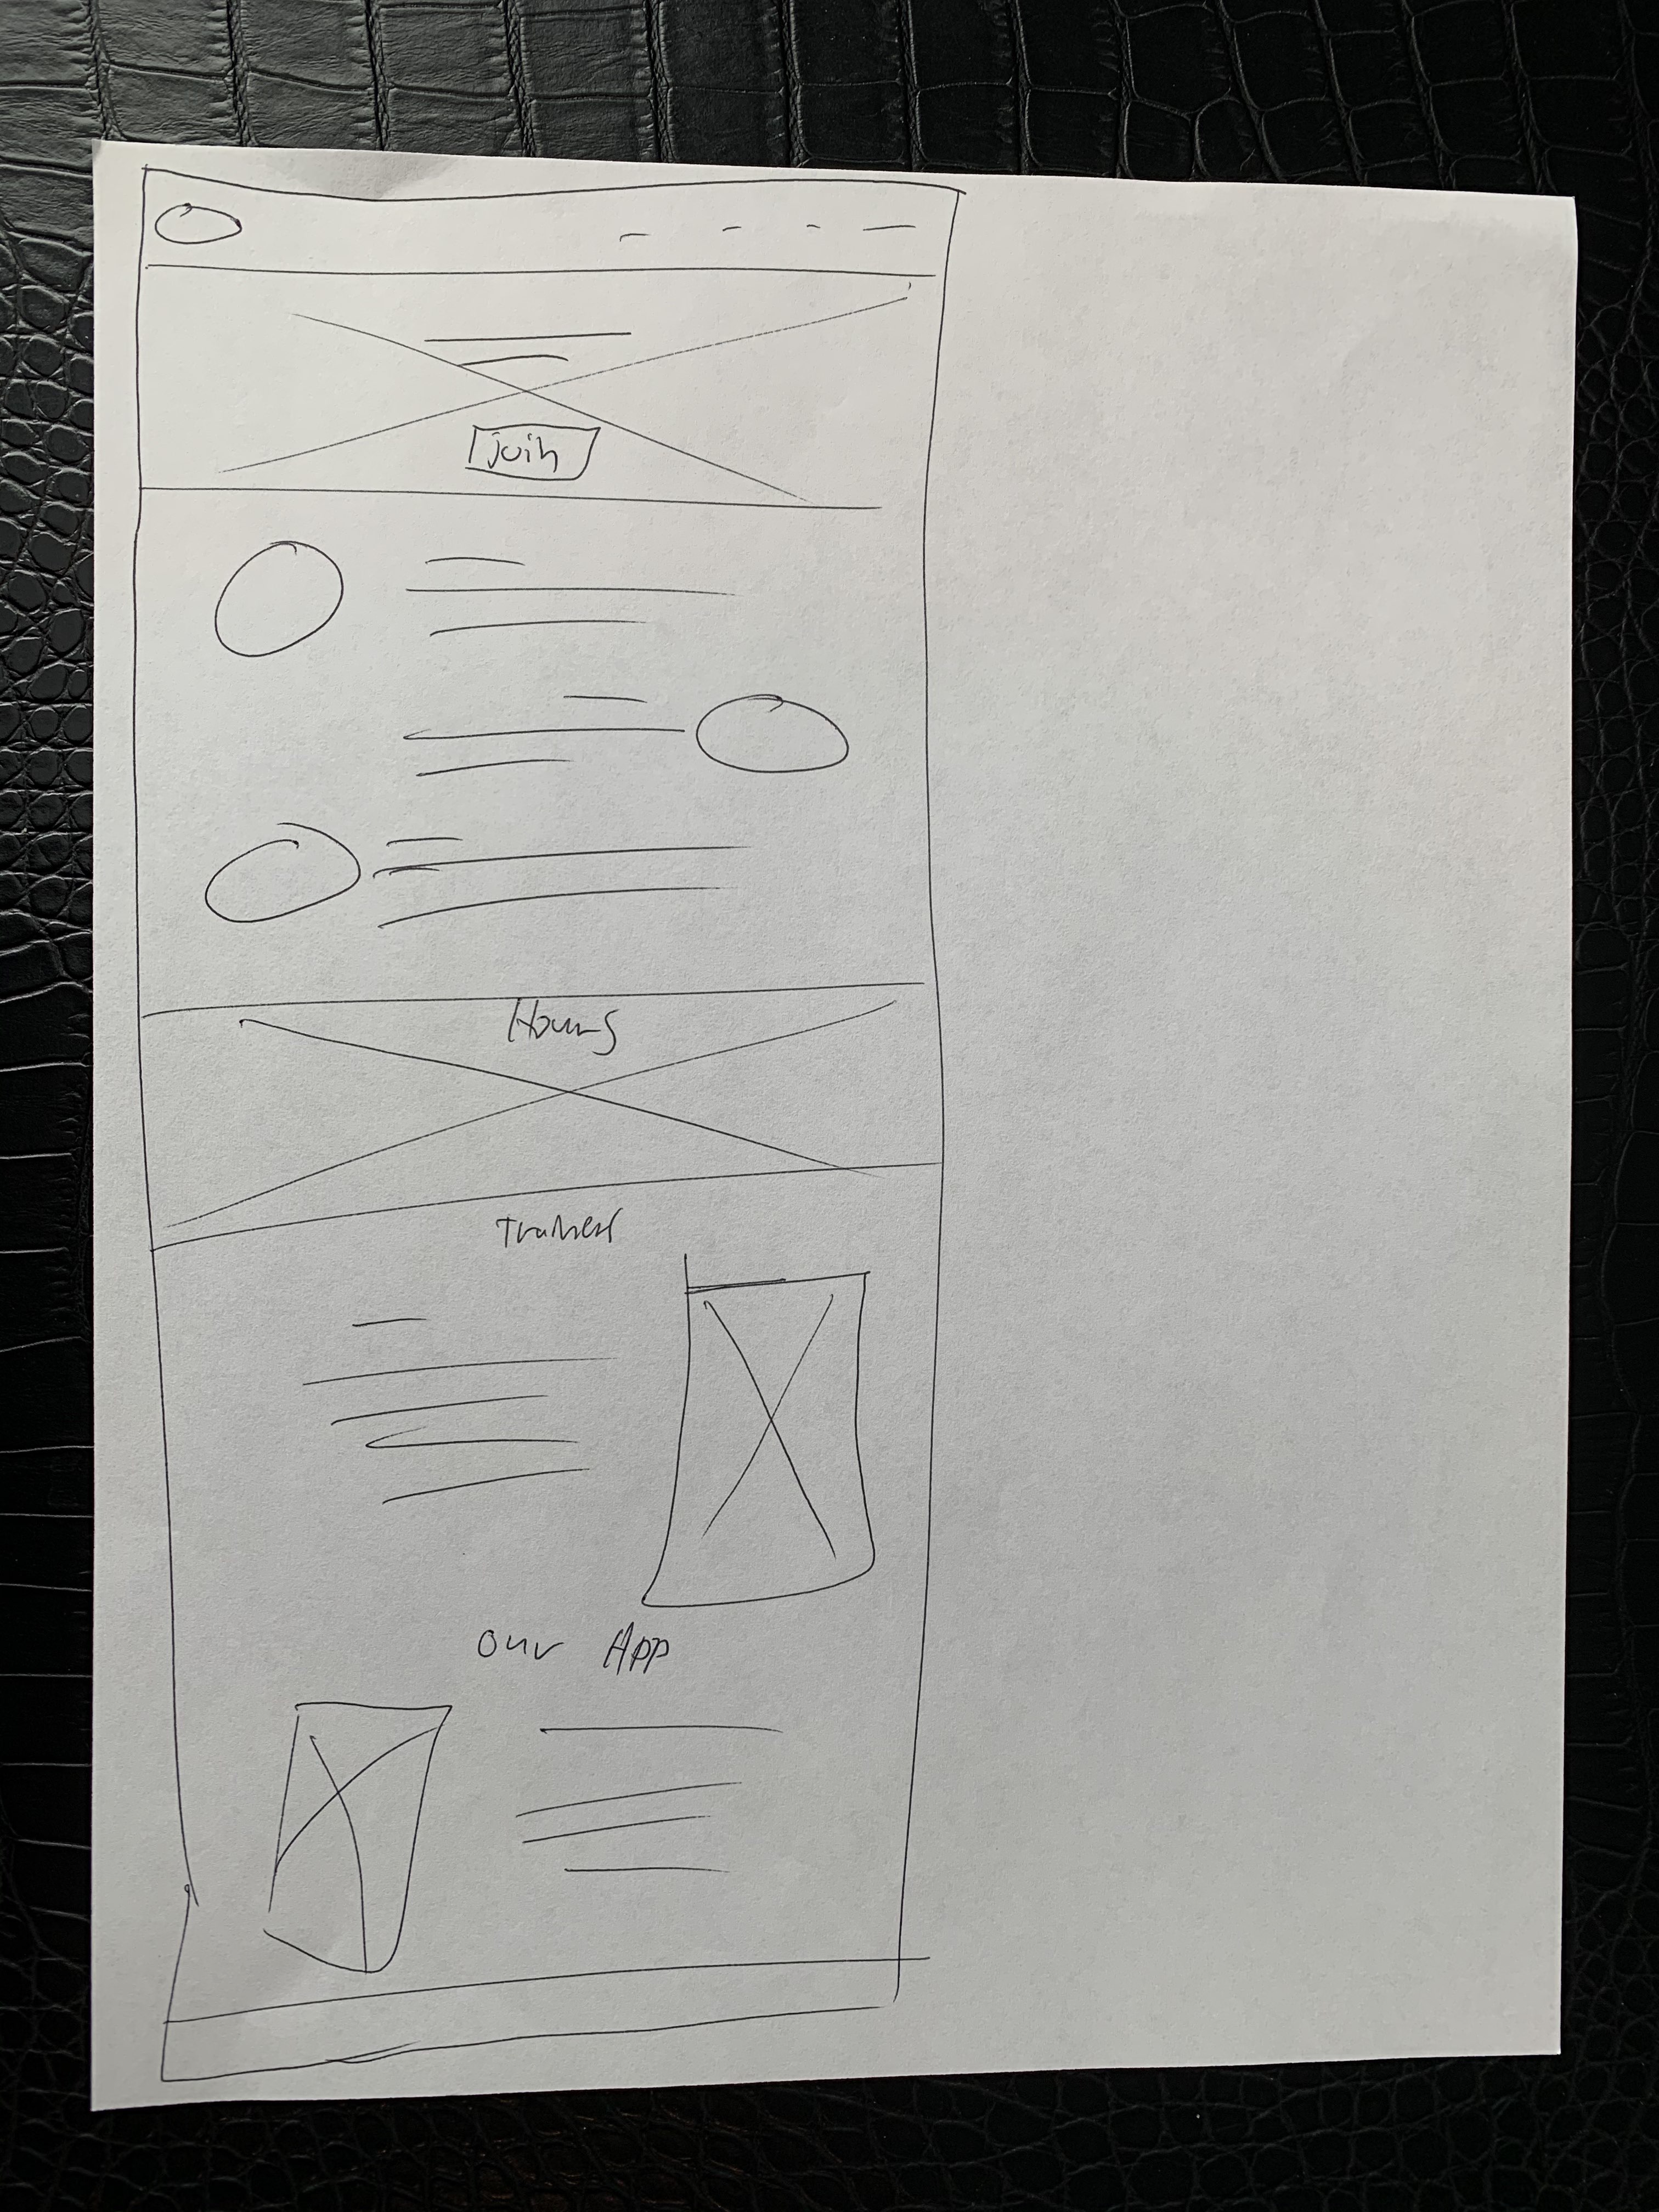 join
Hours
Trainers
our App